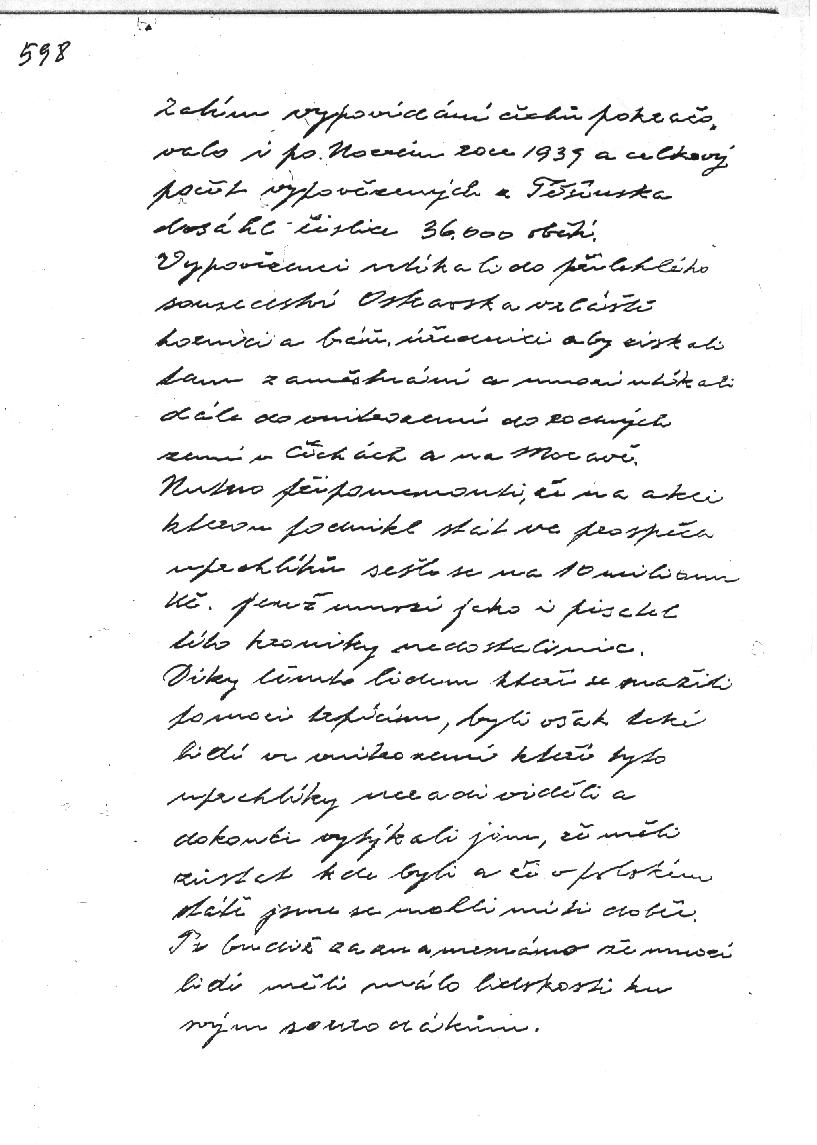 598
Zatím vypovídání čechů pokračo-
valo i po Novém roce 1939 a celkový
počet vypovězených z Těšínska
dosáhl číslice 36.000 obětí.
Vypovězenci utíkali do přilehlého
sousedství Ostravska zvláště
horníci a báň. úředníci aby získali
tam zaměstnání a mnozí utíkali
dále do vnitrozemí do rodných
zemí v Čechách a na Moravě.
Nutno připomenouti, že na akci
kterou podnikl stát ve prospěch
uprchlíků sešlo se na 10 milionu
Kč. jenž mnozí jako i pisatel
této kroniky nedostali nic.
Díky těmto lidem kteří se snažili
pomoci trpícím, byli však také
lidé ve vnitrozemí kteří tyto
uprchlíky neradi viděli a
dokonce vytýkali jim, že měli
zůstat kde byli a že v polském
státě jsme se mohli míti dobře.
To budiž zaznamenáno že mnozí
lidé měli málo lidskosti ku
svým sourodákům.